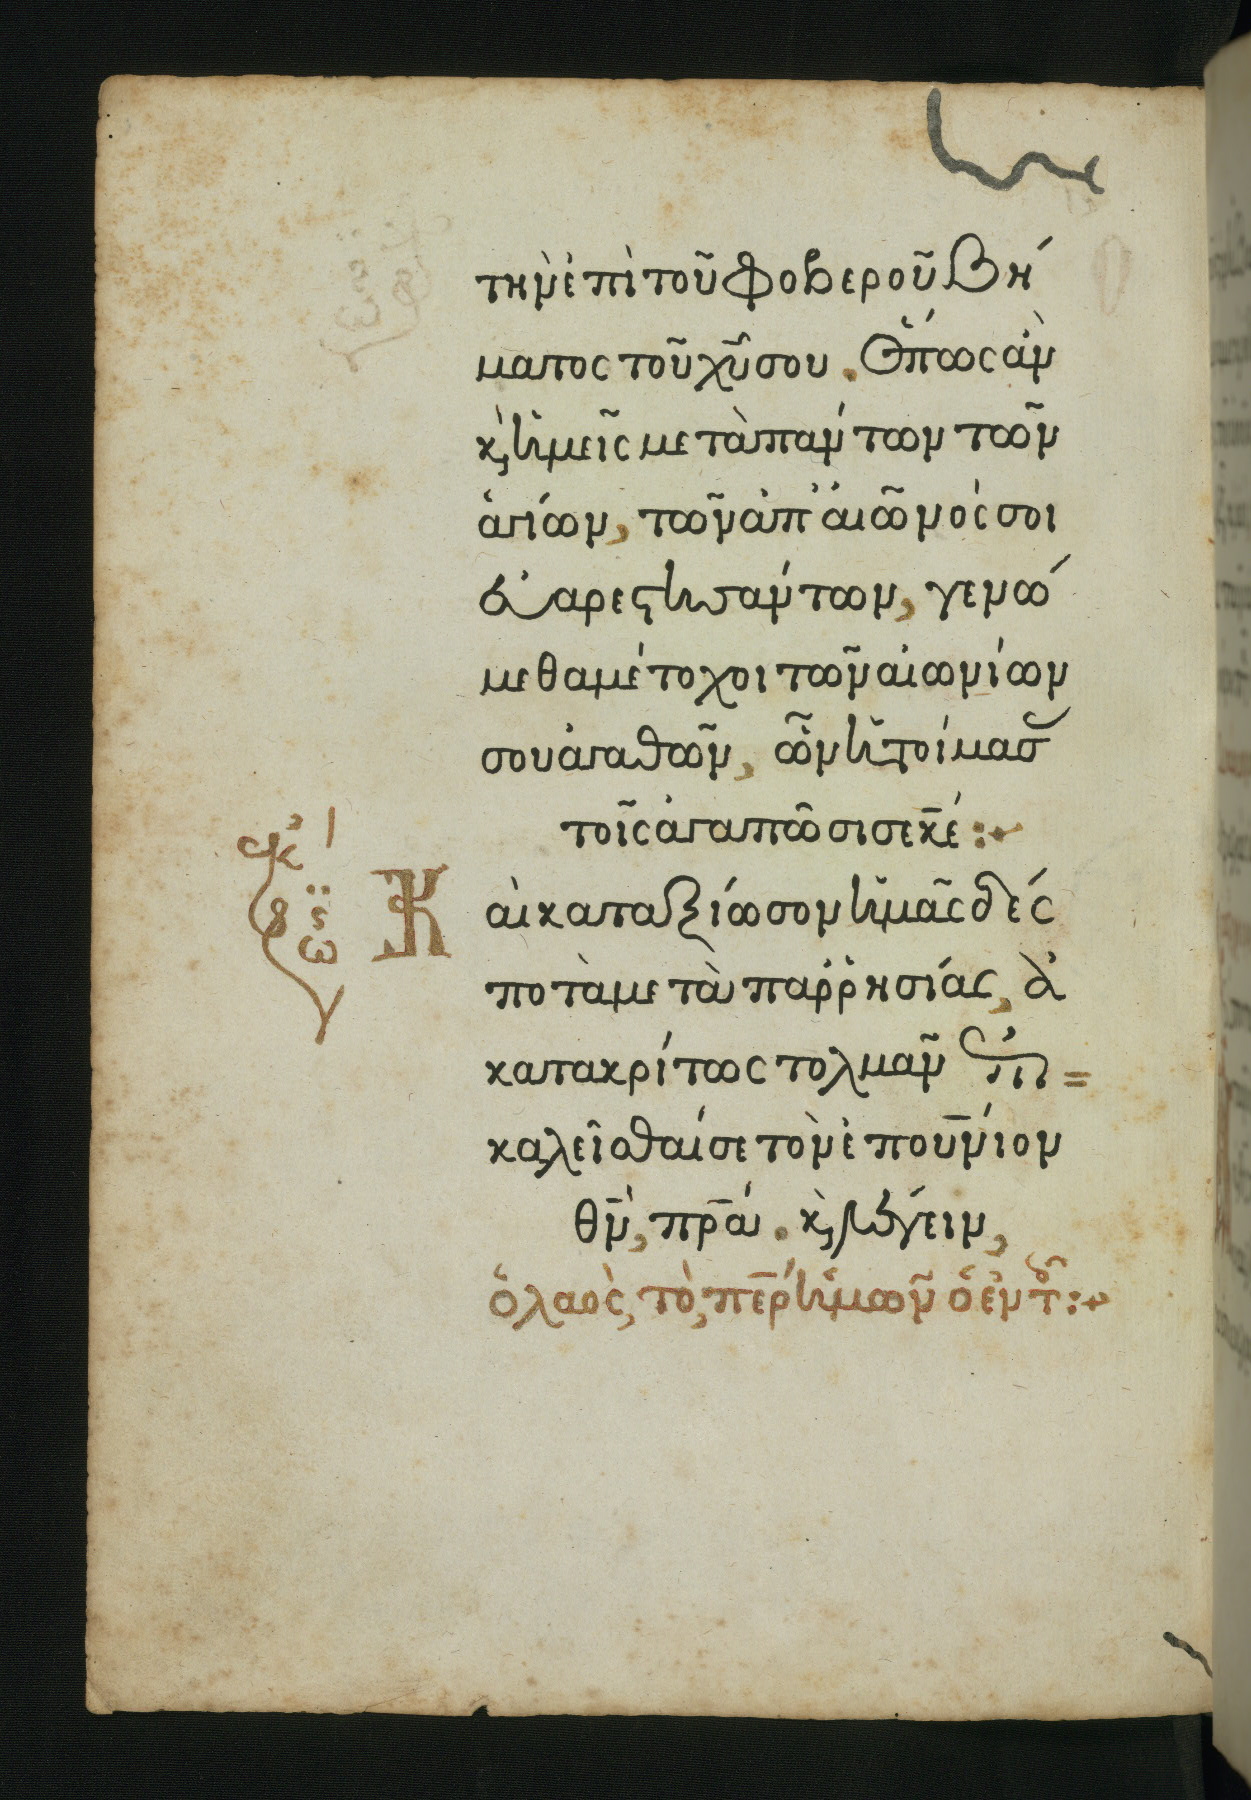 τὴν ἐπὶ τοῦ φοβεροῦ βή
ματος τοῦ χῡ σου. Ὅπως ἂν
κ, ἡμεῖς μετὰ πάντων τῶν
ἁγίων, τῶν ἀπ' αἰῶνός σοι
εὐαρεστησάντων, γενώ
μεθα μέτοχοι τῶν αἰωνίων
σου ἀγαθῶν, ὧν ἡτοίμασ
τοῖς ἀγαπῶσί σε κ̄ε:
Καὶ καταξίωσον ἡμᾶς δέσ
ποτα μετὰ παῤῥησίας, ἀ
κατακρίτως τολμᾶν ἐπι=
καλεῖσθαί σε τὸν ἐπουν̄ιον
θ̄ν, π̄ρα. κ, λέγειν,
ὁ λαὸς, τὸ, π̄ερ ἡμῶν ὁ ἐν τ: